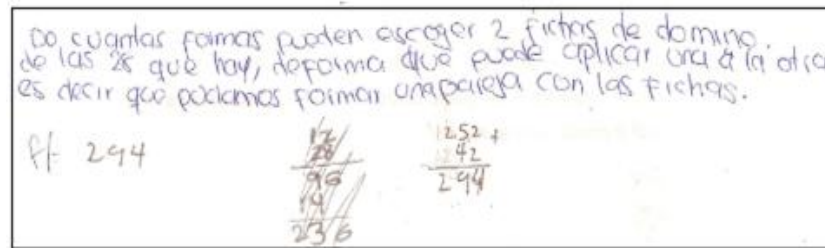 Do cuantas formas pueden escoger 2 fichas de domino.
de las 28 que hay, deforma que puede aplicar una a la otra
es decir que podamos formar unapareja con las fichas.
R/ 294
252 +
42
294